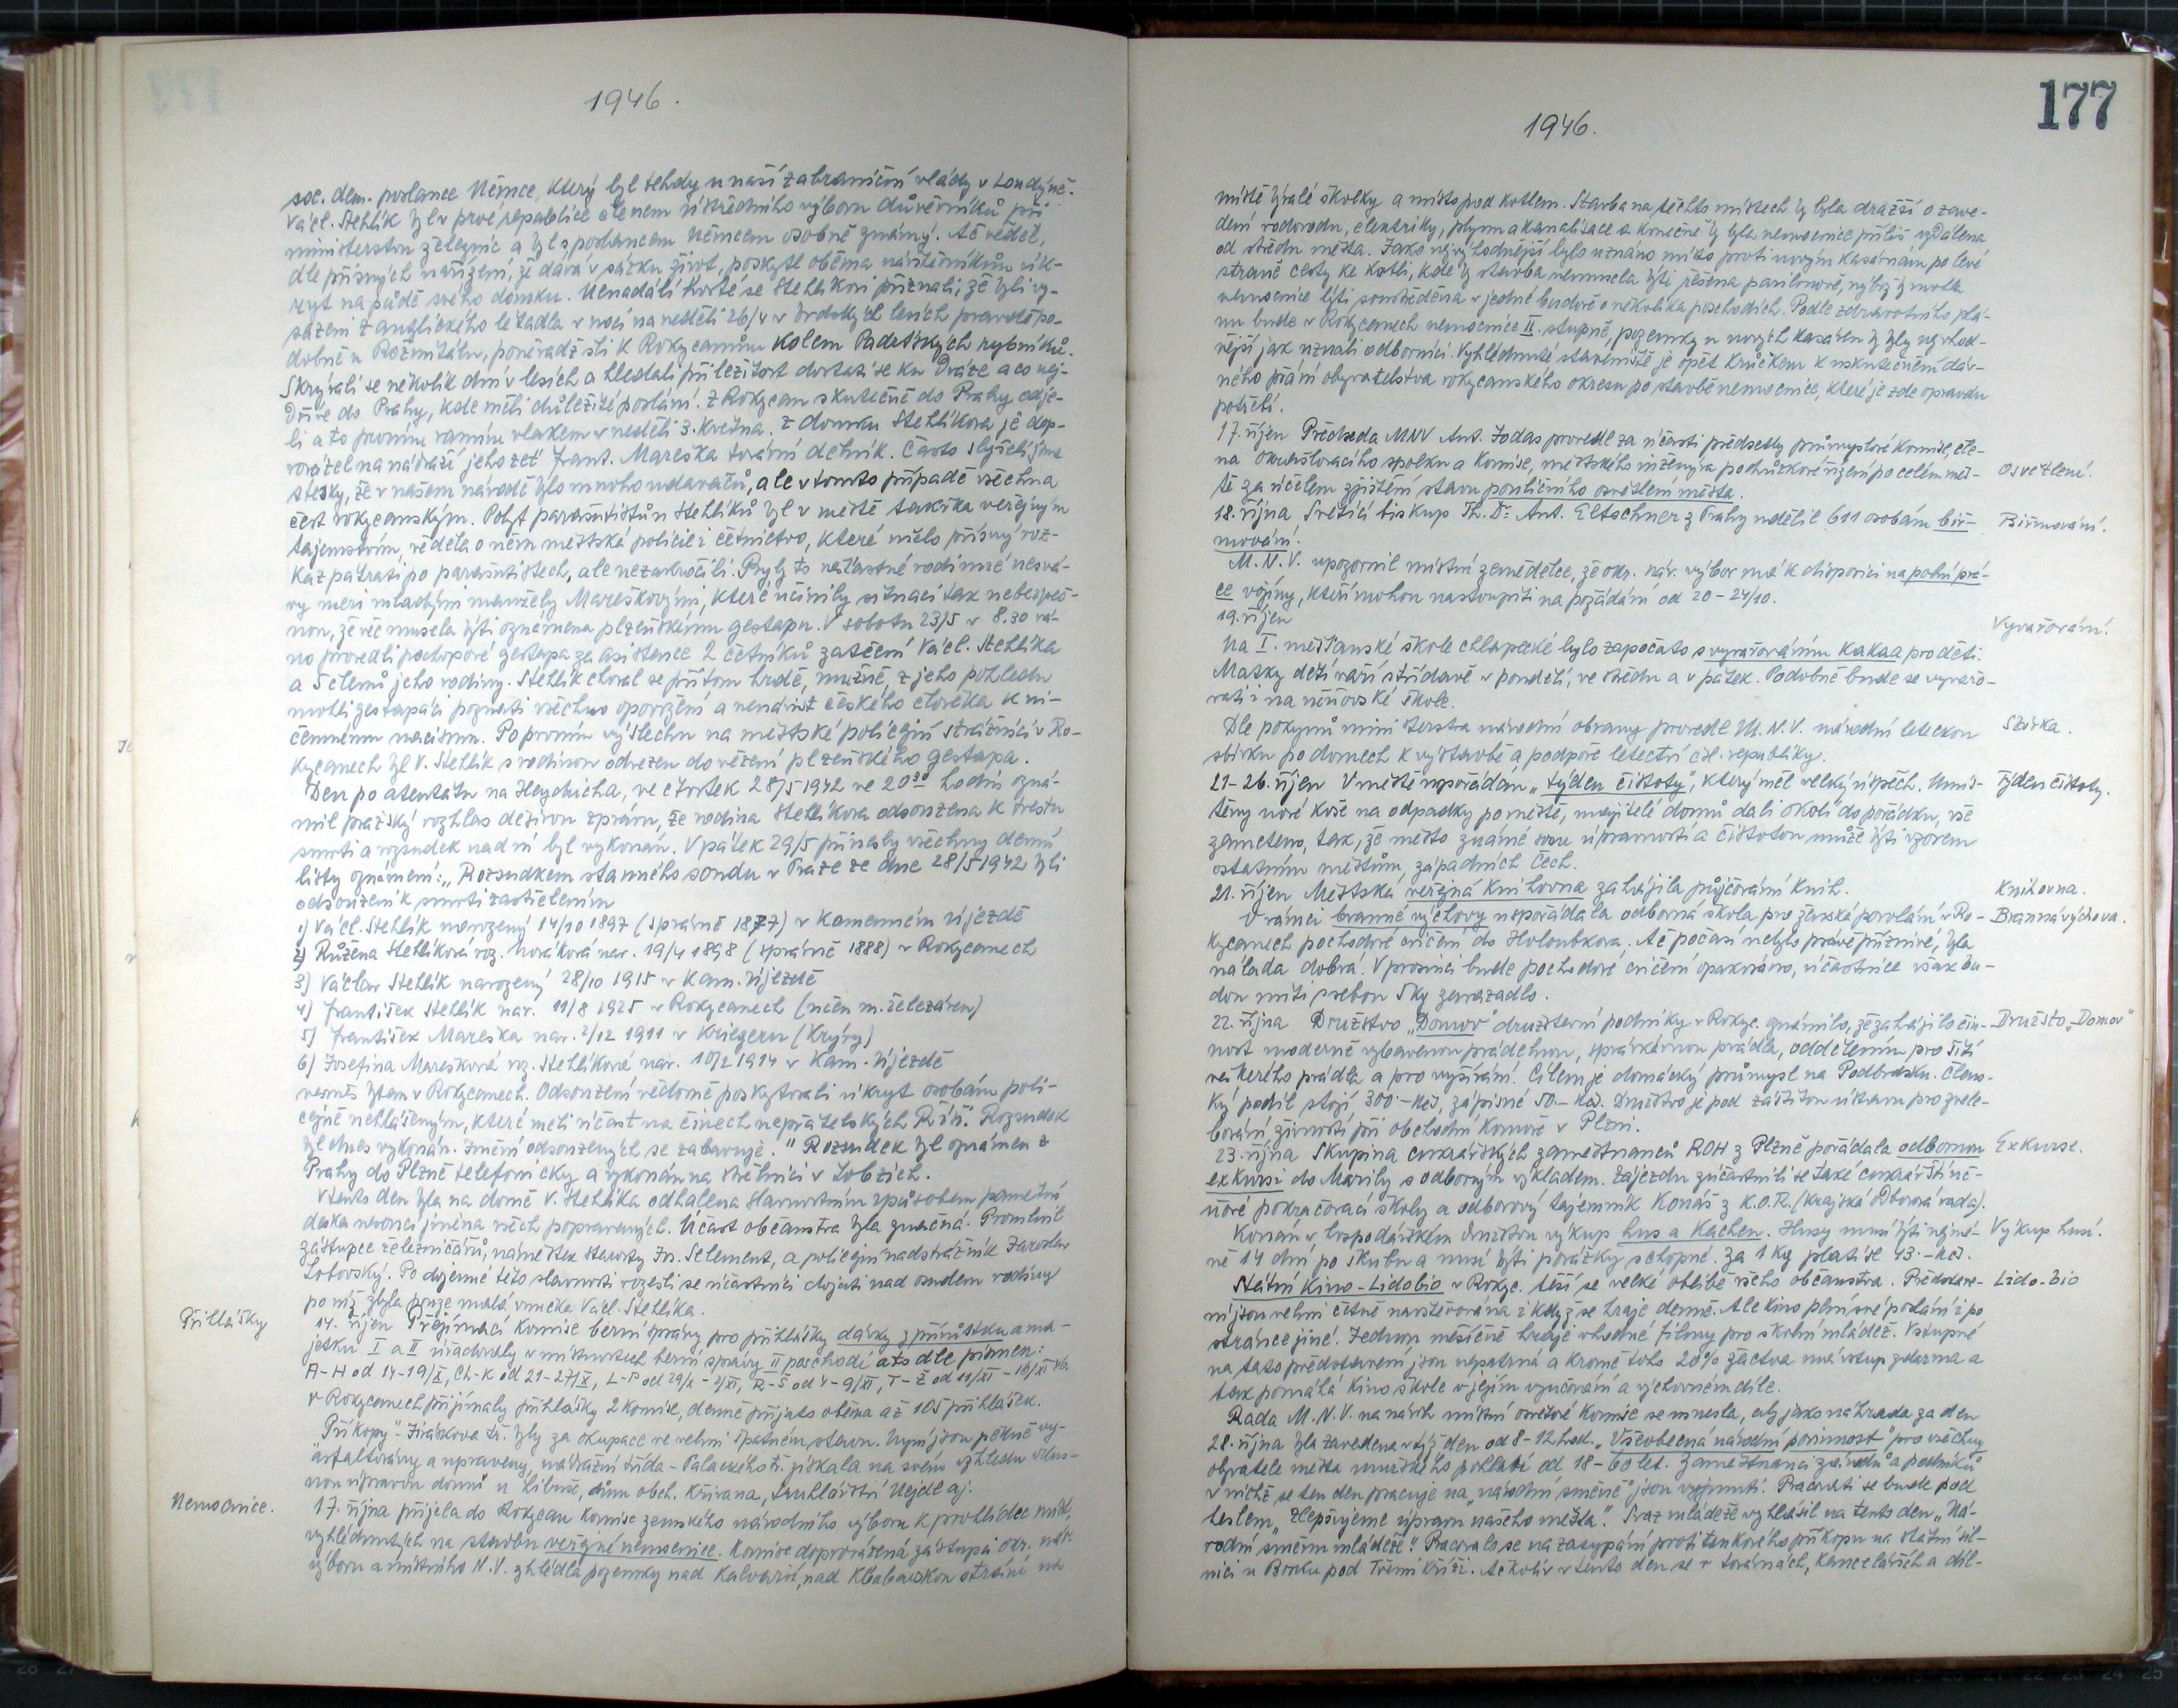 1946.
soc. dem. poslance Němce, který byl tehdy u naší zahraniční vlády v Londýně.
Václ. Stehlík byl v prvé republice členem ústředního výboru důvěrníků při
ministerstvu železnic a byl s poslancem Němcem osobně známý. Ač věděl,
dle přísných nařízení, že dává v sázku život, poskytl oběma návštěvníkům úk-
ryt na půdě svého domku. Nenadálí hosté se Stehlíkovi přiznali, že byli vy-
sazeni z anglického letadla v noci na neděli 26/4 v brdských lesích pravděpo-
dobně u Rožmitálu, poněvadž šli k Rokycanům kolem Padrťských rybníků.
Skrývali se několik dní v lesích a hledali příležitost dostati se ku dráze a co nej-
dříve do Prahy, kde měli důležité poslání. Z Rokycan skutečně do Prahy odje-
li a to prvním ranním vlakem v neděli 3. května. Z domku Stehlíkova je dop-
rovázel na nádraží jeho zeť Frant. Mareška tovární dělník. Často slyšeli jsme
stesky, že v našem národě bylo mnoho udavačů, ale v tomto případě všechna
čest rokycanským. Pobyt parašutistů u Stehlíků byl v městě takřka veřejným
tajemstvím, věděla o něm městská policie i četnictvo, které mělo přísný roz-
kaz pátrati po parašutistech, ale nezakročili. Byly to nešťastné rodinné nesvá-
ry mezi mladými manžely Mareškovými, které učinily situaci tak nebezpeč-
nou, že věc musela býti oznámena plzeňskému gestapu. V sobotu 23/5 v 8.30 rá-
no provedli pochopové gestapa za asistence 2 četníků zatčení Václ. Stehlíka
a 5 členů jeho rodiny. Stehlík choval se přitom hrdě, mužně, z jeho pohledu
mohli gestapáci poznati všechno opovržení a nenávist českého člověka k ni-
čemnému nacismu. Po prvním výslechu na městské policejní strážnici v Ro-
kycanech byl V. Stehlík s rodinou odvezen do vězení plzeňského gestapa.
Den po atentátu na Heydricha, ve čtvrtek 28/5 1942 ve 20 30 hodin ozná-
mil pražský rozhlas děsivou zprávu, že rodina Stehlíkova odsouzena k trestu
smrti a rozsudek nad ní byl vykonán. V pátek 29/5 přinesly všechny denní
listy oznámení: „Rozsudkem stanného soudu v Praze ze dne 28/5 1942 byli
odsouzeni k smrti zastřelením
1) Václ. Stehlík narozený 14/10 1897 (správně 1877) v Kamenném Újezdě
2) Růžena Stehlíková roz. Nováková nar. 19/4 1898 (správně 1888) v Rokycanech
3) Václav Stehlík narozený 28/10 1915 v Kam. Újezdě
4) František Stehlík nar. 11/8 1925 v Rokycanech (učeň m. železáren)
5) František Mareška nar. 2/12 1911 v Kriegern (Kryry)
6) Josefina Marešková roz. Stehlíková nar. 10/2 1914 v Kam. Újezdě
vesměs bytem v Rokycanech. Odsouzení vědomě poskytovali úkryt osobám poli-
cejně nehlášeným, které měli účast na činech nepřátelských Říši. Rozsudek
byl dnes vykonán. Jmění odsouzených se zabavuje." Rozsudek byl oznámen z
Prahy do Plzně telefonicky a vykonán na střelnici v Lobzích.
V tento den byla na domě V. Stehlíka odhalena slavnostním způsobem pamětní
deska nesoucí jména všech popravených. Účast občanstva byla značná. Promluvil
zástupce železničářů, náměstek starosty Jos. Selement, a policejní nadstrážník Jaroslav
Lobovský. Po dojemné této slavnosti rozešli se účastníci dojati nad osudem rodiny
po níž zbyla pouze malá vnučka Václ. Stehlíka.
Přihlášky
14. říjen Přejímací komise berní správy pro přihlášky dávky z přírůstku a ma-
jetku I a II úřadovaly v místnostech berní správy II poschodí a to dle písmen:
A-H od 14-19/X, Ch-K od 21-27/X, L-P od 29/X-2/XI, R-Š od 4-9/XI, T-Ž od 11/XI-16/XI t.r.
V Rokycanech přijímaly přihlášky 2 komise, denně přijato oběma až 105 přihlášek.
Příkopy"- Jiráskova tř. byly za okupace ve velmi špatném stavu. Nyní jsou pěkně vy-
asfaltovány a upraveny, nádražní třída - Palackého tř. získala na svém vzhledu vkus-
nou úpravou domů u Libuše, dům obch. Křivana, truhlářství Nejdl aj.
Nemocnice.
17. října přijela do Rokycan komise zemského národního výboru k prohlídce míst,
vyhlédnutých na stavbu veřejné nemocnice. Komise doprovázená zástupci okr. nár.
výboru a místního N.V. zhlédla pozemky nad Kalvarií, nad Klabavskou strání na
177
1946.
místě bývalé školky a místo pod kotlem. Stavba na těchto místech by byla dražší o zave-
dení vodovodu, elektriky, plynu a kanalisace a konečně by byla nemocnice příliš vzdálena
od středu města. Jako nejvýhodnější bylo uznáno místo proti novým kasárnám po levé
straně cesty ke kotli, kde by stavba nemusela býti řešena pavilonově, nýbrž by mohla
nemocnice býti soustředěna v jedné budově o několika poschodích. Podle zdravotního plá-
nu bude v Rokycanech nemocnice II. stupně, pozemky u nových kasáren by byly nejvhod-
nější jak uznali odborníci. Vyhlédnuté staveniště je opět krůčkem k uskutečnění dáv-
ného přání obyvatelstva rokycanského okresu po stavbě nemocnice, které je zde opravdu
potřebí.
17. říjen Předseda MNV Ant. Jodas provedl za účasti předsedy průmyslové komise, čle-
na okrašlovacího spolku a komise, městského inženýra pochůzkové řízení po celém měs-
Osvětlení.
tě za účelem zjištění stavu pouličního osvětlení města.
18. října Světící biskup Th. Dr. Ant. Eltschner z Prahy udělil 611 osobám biř-
Biřmování.
mování.
M. N. V. upozornil místní zemědělce, že okr. nár. výbor má k disposici na polní prá-
ce vojíny, kteří mohou nastoupiti na požádání od 20-24/10.
19. říjen
Vyvařování.
Na I. měšťanské škole chlapecké bylo započato s vyvařováním kakaa pro děti.
Matky dětí vaří střídavě v pondělí, ve středu a v pátek. Podobně bude se vyvařo-
vati i na něnovské škole.
Dle pokynů ministerstva národní obrany provedl M. N. V. národní leteckou
Sbírka.
sbírku po domech k výstavbě a podpoře letectví čsl. republiky.
21-26. říjen V městě uspořádán „týden čistoty", který měl velký úspěch. Umís-
Týden čistoty.
těny nové koše na odpadky po městě, majitelé domů dali okolí do pořádku, vše
zameteno, tak, že město známé svou úpravností a čistotou může býti vzorem
ostatním městům, západních Čech.
21. říjen Městská veřejná knihovna zahájila půjčování knih.
Knihovna.
V rámci branné výchovy uspořádala odborná škola pro ženská povolání v Ro-
Branná výchova.
kycanech pochodové cvičení do Holoubkova. Ač počasí nebylo právě příznivé, byla
nálada dobrá. V prosinci bude pochodové cvičení opakováno, účastnice však bu-
dou míti s sebou 5kg zavazadlo.
22. října Družstvo „Domov" družstevní podniky v Rokyc. oznámilo, že zahájilo čin-
Družsto „Domov"
nost moderně vybavenou prádelnou, správkárnou prádla, oddělením pro šití
veškerého prádla a pro vyšívání. Cílem je domácký průmysl na Podbrdsku. Člens-
ký podíl stojí 300.- Kčs, zápisné 50.- Kčs. Družstvo je pod záštitou ústavu pro zvele-
bování živností při obchodní komoře v Plzni.
23. října Skupina cukrářských zaměstnanců ROH z Plzně pořádala odbornou
Exkurse.
exkursi do Marily s odborným výkladem. Zájezdu zúčastnili se také cukrářští uč-
ňové pokračovací školy a odborový tajemník Konáš z K.O.R. (Krajská odborová rada).
Konán v hospodářském družstvu výkup hus a kachen. Husy musí býti nejmé-
Výkup husí.
ně 14 dní po škubu a musí býti porážky schopné. Za 1 kg platí se 43.- Kčs.
Státní kino-Lidobio v Rokyc. těší se velké oblibě všeho občanstva. Představe-
Lido-bio
ní jsou velmi četně navštěvována i když se hraje denně. Ale kino plní své poslání i po
stránce jiné. Jednou měsíčně hraje vhodné filmy pro školní mládež. Vstupné
na tato představení jsou nepatrná a kromě toho 20% žactva má vstup zdarma a
tak pomáhá kino škole v jejím vyučování a výchovném díle.
Rada M. N. V. na návrh místní osvětové komise se usnesla, aby jako náhrada za den
28. října byla zavedena v týž den od 8-12 hod. „Všeobecná národní povinnost" pro všechny
obyvatele města mužského pohlaví od 18-60 let. Zaměstnanci závodů a podniků
v nichž se ten den pracuje na „národní směně" jsou vyjmuti. Pracovati se bude pod
heslem „Zlepšujeme úpravu našeho města". Svaz mládeže vyhlásil na tento den „Ná-
rodní směnu mládeže". Pracovalo se na zasypání protitankového příkopu na státní sil-
nici u Borku pod Třemi kříži. Ačkoliv v tento den se v továrnách, kancelářích a díl-